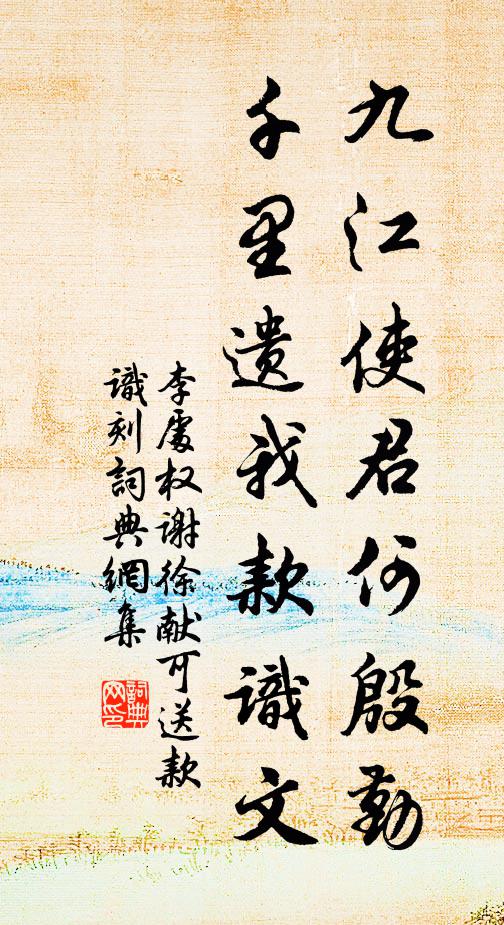 九江使君何殷勤
千里遗我款識文
李處权谢徐献可送款
識刻詞典網集
詞典
网印